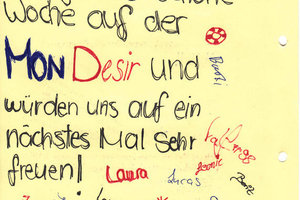 Woche auf der
Mon Desir und
würden uns auf ein
nächstes Mal sehr
freuen!
Laura
Lucas